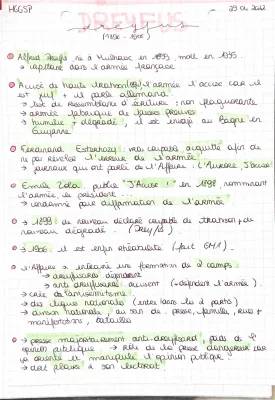 HGGSP
DREYFUS
Alfred Dreyfus né à Mulhouse en 1859, mort en 1935.
→ capitaine dans l'armée française
Accusé de haute trahison, l'armée l'accuse car il
est juif + il parle allemand
→ test de ressemblance d'écriture : non
→ armée fabrique de fausses preuves
→ humilié + dégradé, il est envoyé au Bagne en
Guyanne
Ferdinand Esterhazy : non coupable acquitté afin de
ne pas révéler l'erreur de l'armée
→ journaux qui ont parlé de l'Affaire : l'Aurore J'accuse
Emile Zola, publie "J'Accuse !" en 1898, nommant
l'armée, le président...
→ condamné pour diffamation de l'armée
→ 1899 : de nouveau déclaré coupable de trahison + de
nouveau dégradé. (Dreyfus)
→ 1906 : il est enfin réhabilité
L'Affaire a entraîné une formation de 2 camps
→ dreyfusards défendent
→ anti dreyfusards accusent (+ défendent l'armée).
→ crise de l'antisémitisme
→ des ligues nationales (entre dans les 2 partis)
→ division nationale, au sein de : presse, familles, rues +
manifestations, batailles
→ presse majoritairement anti-dreyfusard, puis de l'
opinion publique → rôle de la presse dangereux car
oriente et manipule l'opinion publique
→ doit plaire à son lectorat